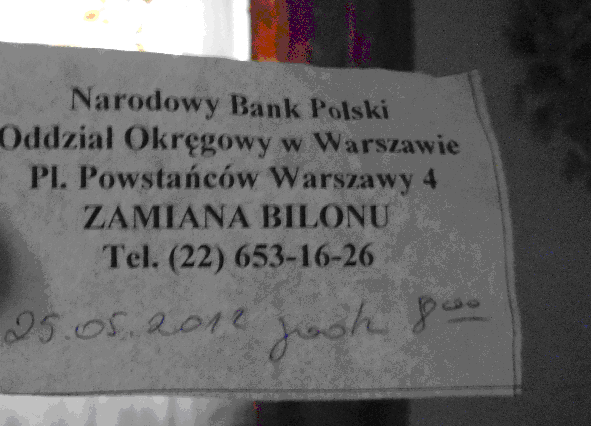 Narodowy Bank Polski
Oddział Okręgowy w Warszawie
Pl. Powstańców Warszawy 4
ZAMIANA BILONU
Tel. (22) 653-16-26
25.05.2012 8ºº